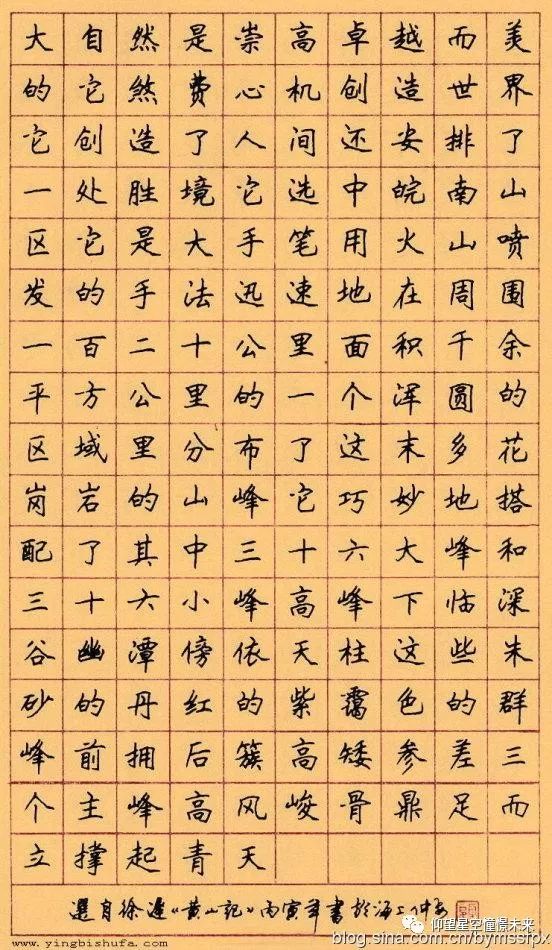 大自然是崇高卓越而美
的它煞费心机创造世界
它创造了人间还安排了
一处胜境它选中皖南山
区它是大手笔用火山喷
发的手法迅速地在周围
一百二十公里面积千余
平方公里的一个浑圆的
区域里分布了这末多花
岗岩的山峰它巧妙地搭
配了其中三十六大峰和
三十六小峰高峰下临深
谷幽潭傍依天柱这些朱
砂的丹红的紫霭色的群
峰前拥后簇高矮参差三
个主峰高风峻骨鼎足而
立撑起青天
选自徐迟《黄山记》丙寅年书于海上
仰望星空懂憬未来
www.yingbishufa.com
blog.sina.com.cn/bymssrbx